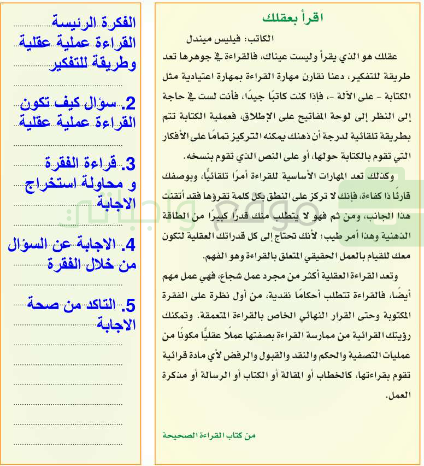 اقرأ بعقلك
الكاتب: فيليس ميندل
عقلك هو الذي يقرأ وليست عيناك، فالقراءة في جوهرها تعد
طريقة للتفكير، دعنا نقارن مهارة القراءة بمهارة اعتيادية مثل
الكتابة – على الآلة –، فإذا كنت كاتبًا جيدًا، فأنت لست في حاجة
إلى النظر إلى لوحة المفاتيح على الإطلاق، فعملية الكتابة تتم
بطريقة تلقائية لدرجة أن ذهنك يمكنه التركيز تمامًا على الأفكار
التي تقوم بالكتابة حولها، أو على النص الذي تقوم بنسخه.
وكذلك تعد المهارات الأساسية للقراءة أمرًا تلقائيًا، وبوصفك
قارئًا ذا كفاءة، فإنك لا تركز على النطق بكل كلمة تقرؤها فقد أتقنت
هذا الجانب، ومن ثم فهو لا يتطلب منك قدرًا كبيرًا من الطاقة
الذهنية وهذا أمر طيب؛ لأنك تحتاج إلى كل قدراتك العقلية لتكون
معك للقيام بالعمل الحقيقي المتعلق بالقراءة وهو الفهم.
وتعد القراءة العقلية أكثر من مجرد عمل شجاع، فهي عمل مهم
أيضًا، فالقراءة تتطلب أحكامًا نقدية، من أول نظرة على الفقرة
المكتوبة وحتى القرار النهائي الخاص بالقراءة المتعمقة. وتمكنك
رؤيتك القرائية من ممارسة القراءة بصفتها عملًا عقليًا مكونًا من
عمليات التصفية والحكم والنقد والقبول والرفض لأي مادة قرائية
تقوم بقراءتها، كالخطاب أو المقالة أو الكتاب أو الرسالة أو مذكرة
العمل.
من كتاب القراءة الصحيحة
الفكرة الرئيسة
القراءة عملية عقلية
وطريقة للتفكير
2. سؤال كيف تكون
القراءة عملية عقلية
3. قراءة الفقرة
و محاولة استخراج
الاجابة
4. الاجابة عن السؤال
من خلال الفقرة
5. التاكد من صحة
الاجابة